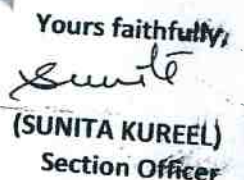 Yours faithfully,
Sunita
(SUNITA KUREEL)
Section Officer